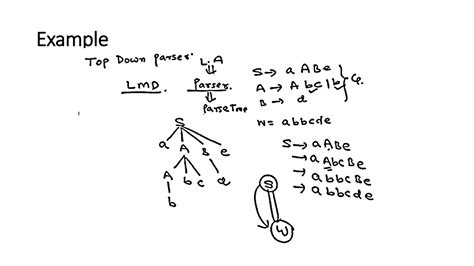 Example
Top Down parser:
L.A
LMD.
Parser
ParseTree
S → a A B e
A → A b c | b
B → d
G.
w = abbcde
S
a A B e
A b c d
b
S → aABe
→ aAbcBe
→ abbcBe
→ abbcde
S
W